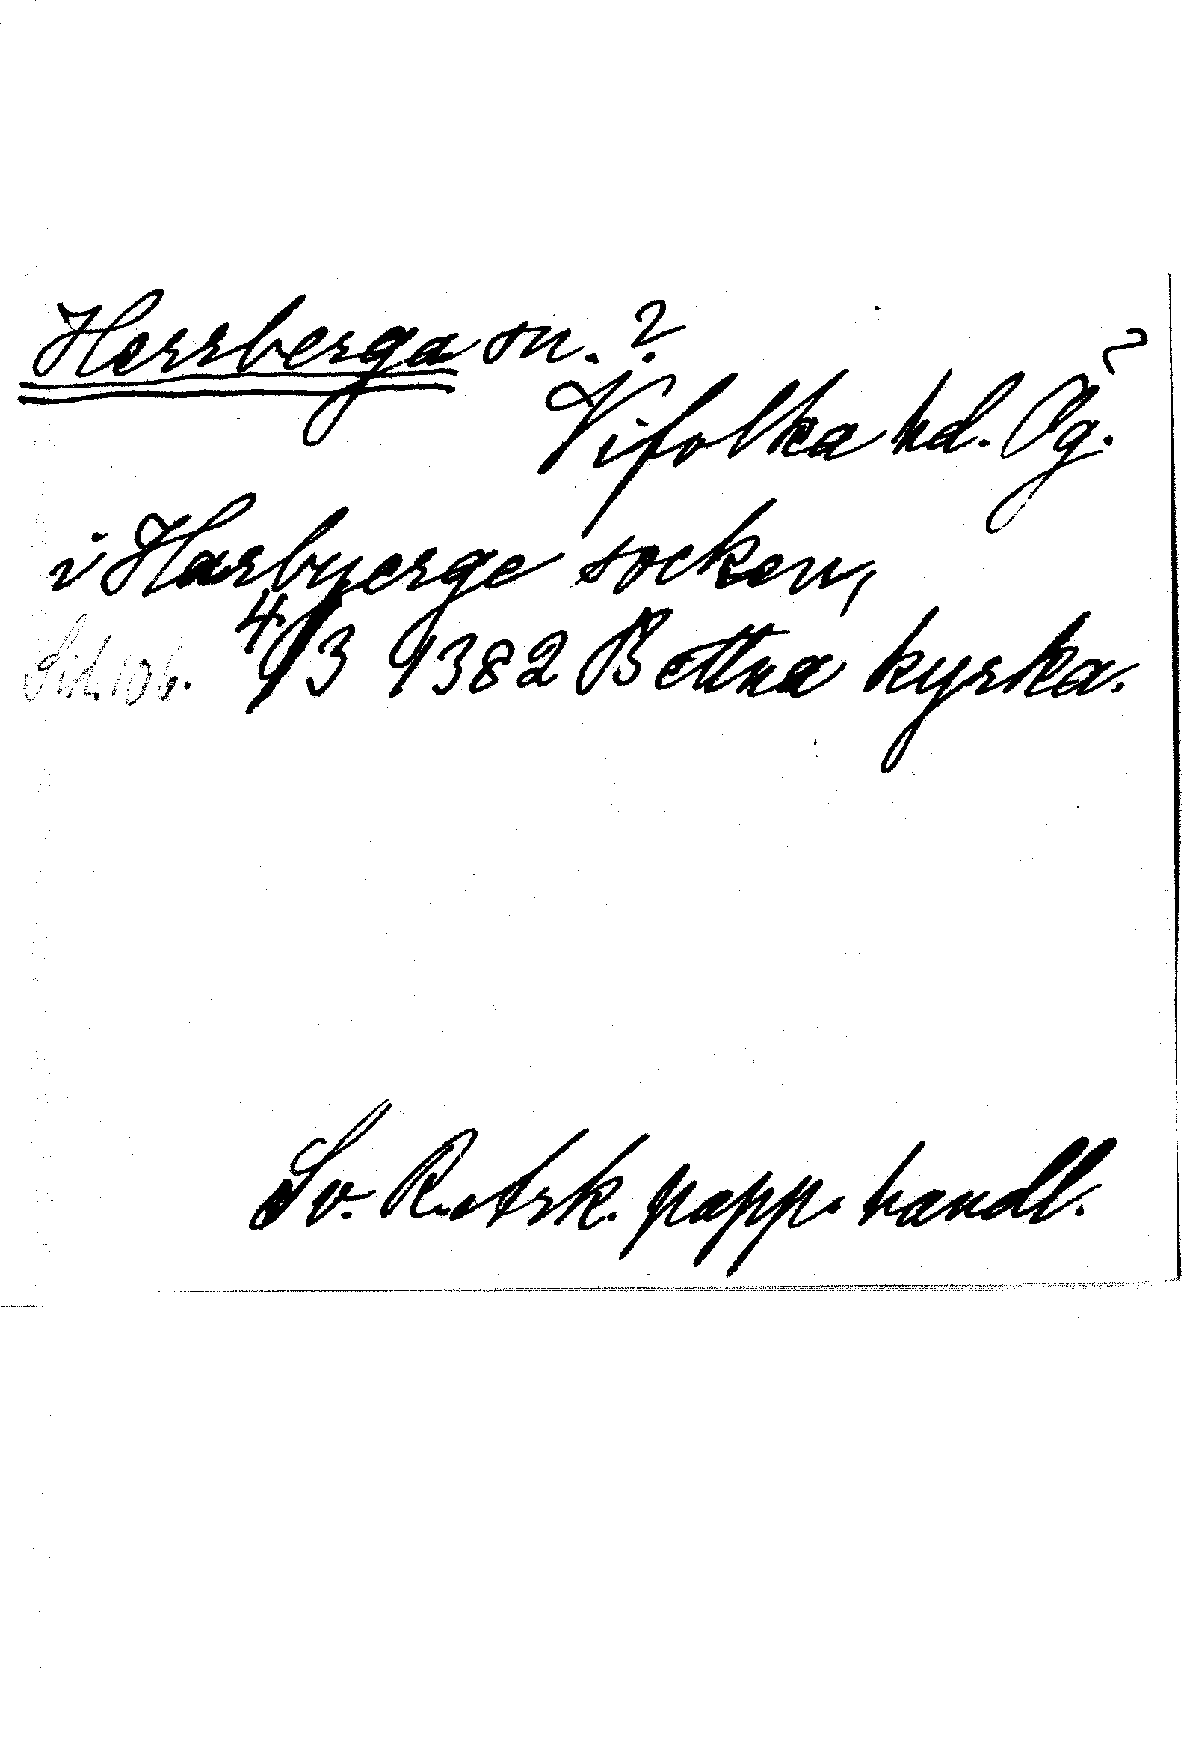 Herrberga sn. ?
Vifolka hd. Ög. ?
i Harbyerge socken,
4/3 1382 Bettna kyrka.
Sv. R.ark. papp. handl.